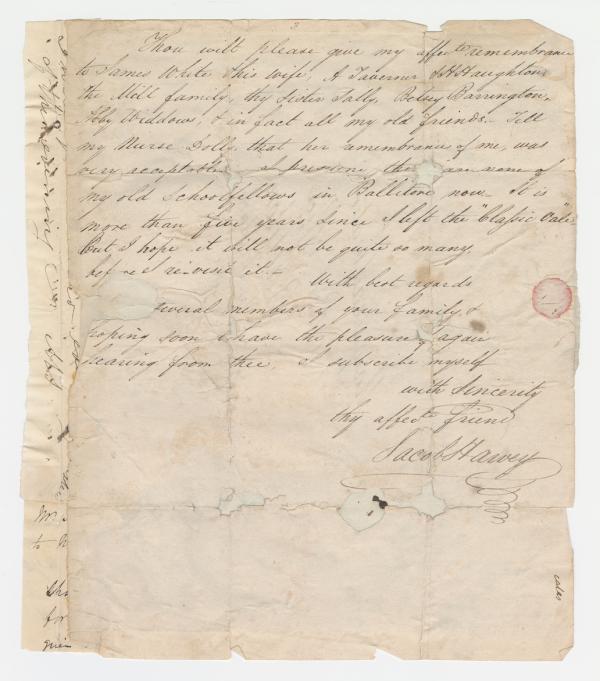 3
Thou will please give my affecte remembrance
to James White & his wife, A Taverner & H Haughton
the Mill family, thy Sister Sally, Betsey Barrington,
Widdows, & in fact all my old friends. Tell
my Nurse Dolly, that her remembrance of me, was
very acceptable. I presume there are none of
my old Schoolfellows in Ballitore now. It is
more than five years since I left the "Classic Vale"
but I hope it will not be quite so many
before I revisit it.
With best regards
several members of your family, &
hoping soon to have the pleasure again
hearing from thee I subscribe myself
with Sincerity
thy affecte Friend
Jacob Harvey
to
for